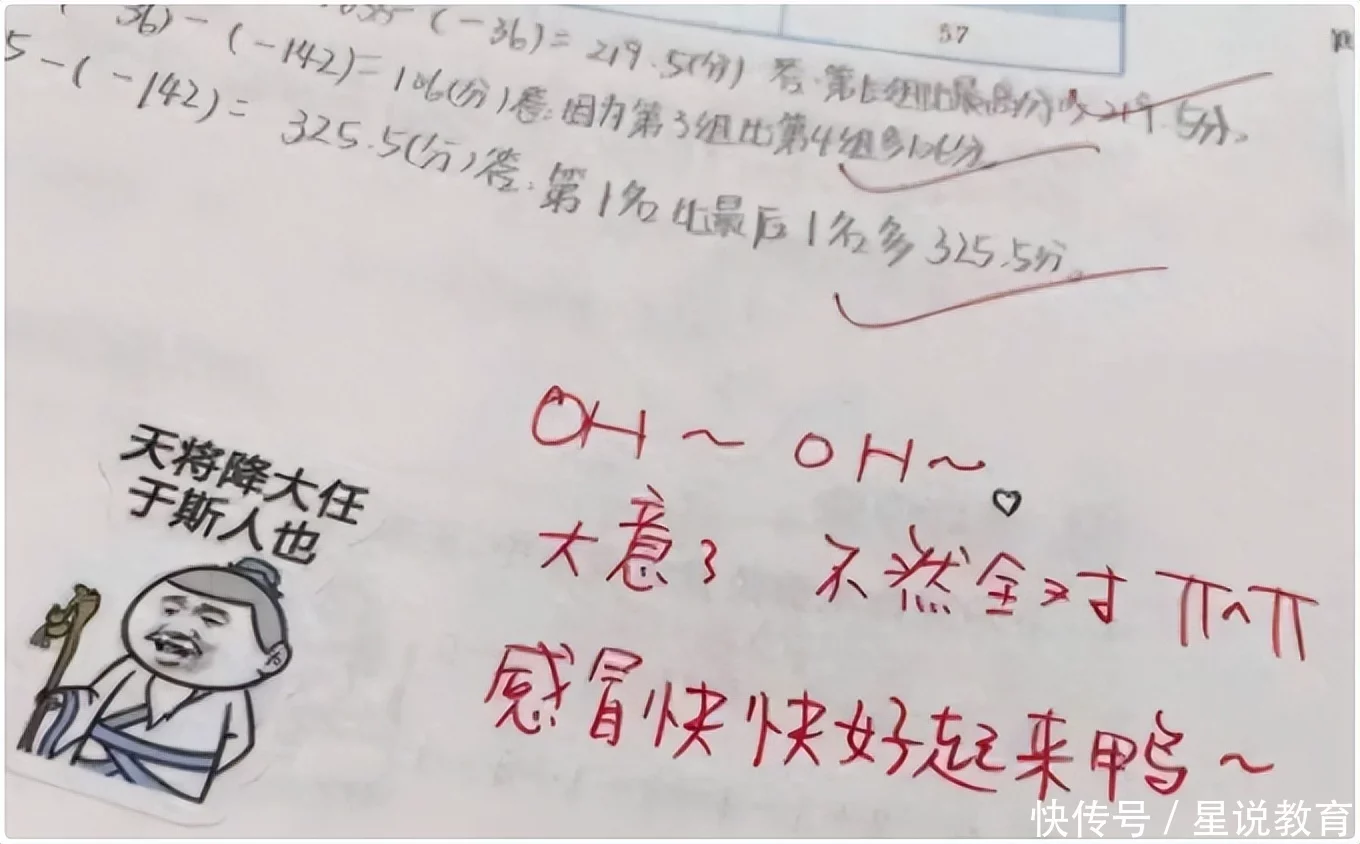 57
36)-(-142)=106(分)答:因为第3组比第4组多106分。
-(-36)=219.5(分)
5-(-142)=325.5(分)答:第1名比最后1名多325.5分。
OH~OH~♡
大意了 不然全对 π^π
感冒快快好起来鸭~
天将降大任
于斯人也
快传号/星说教育